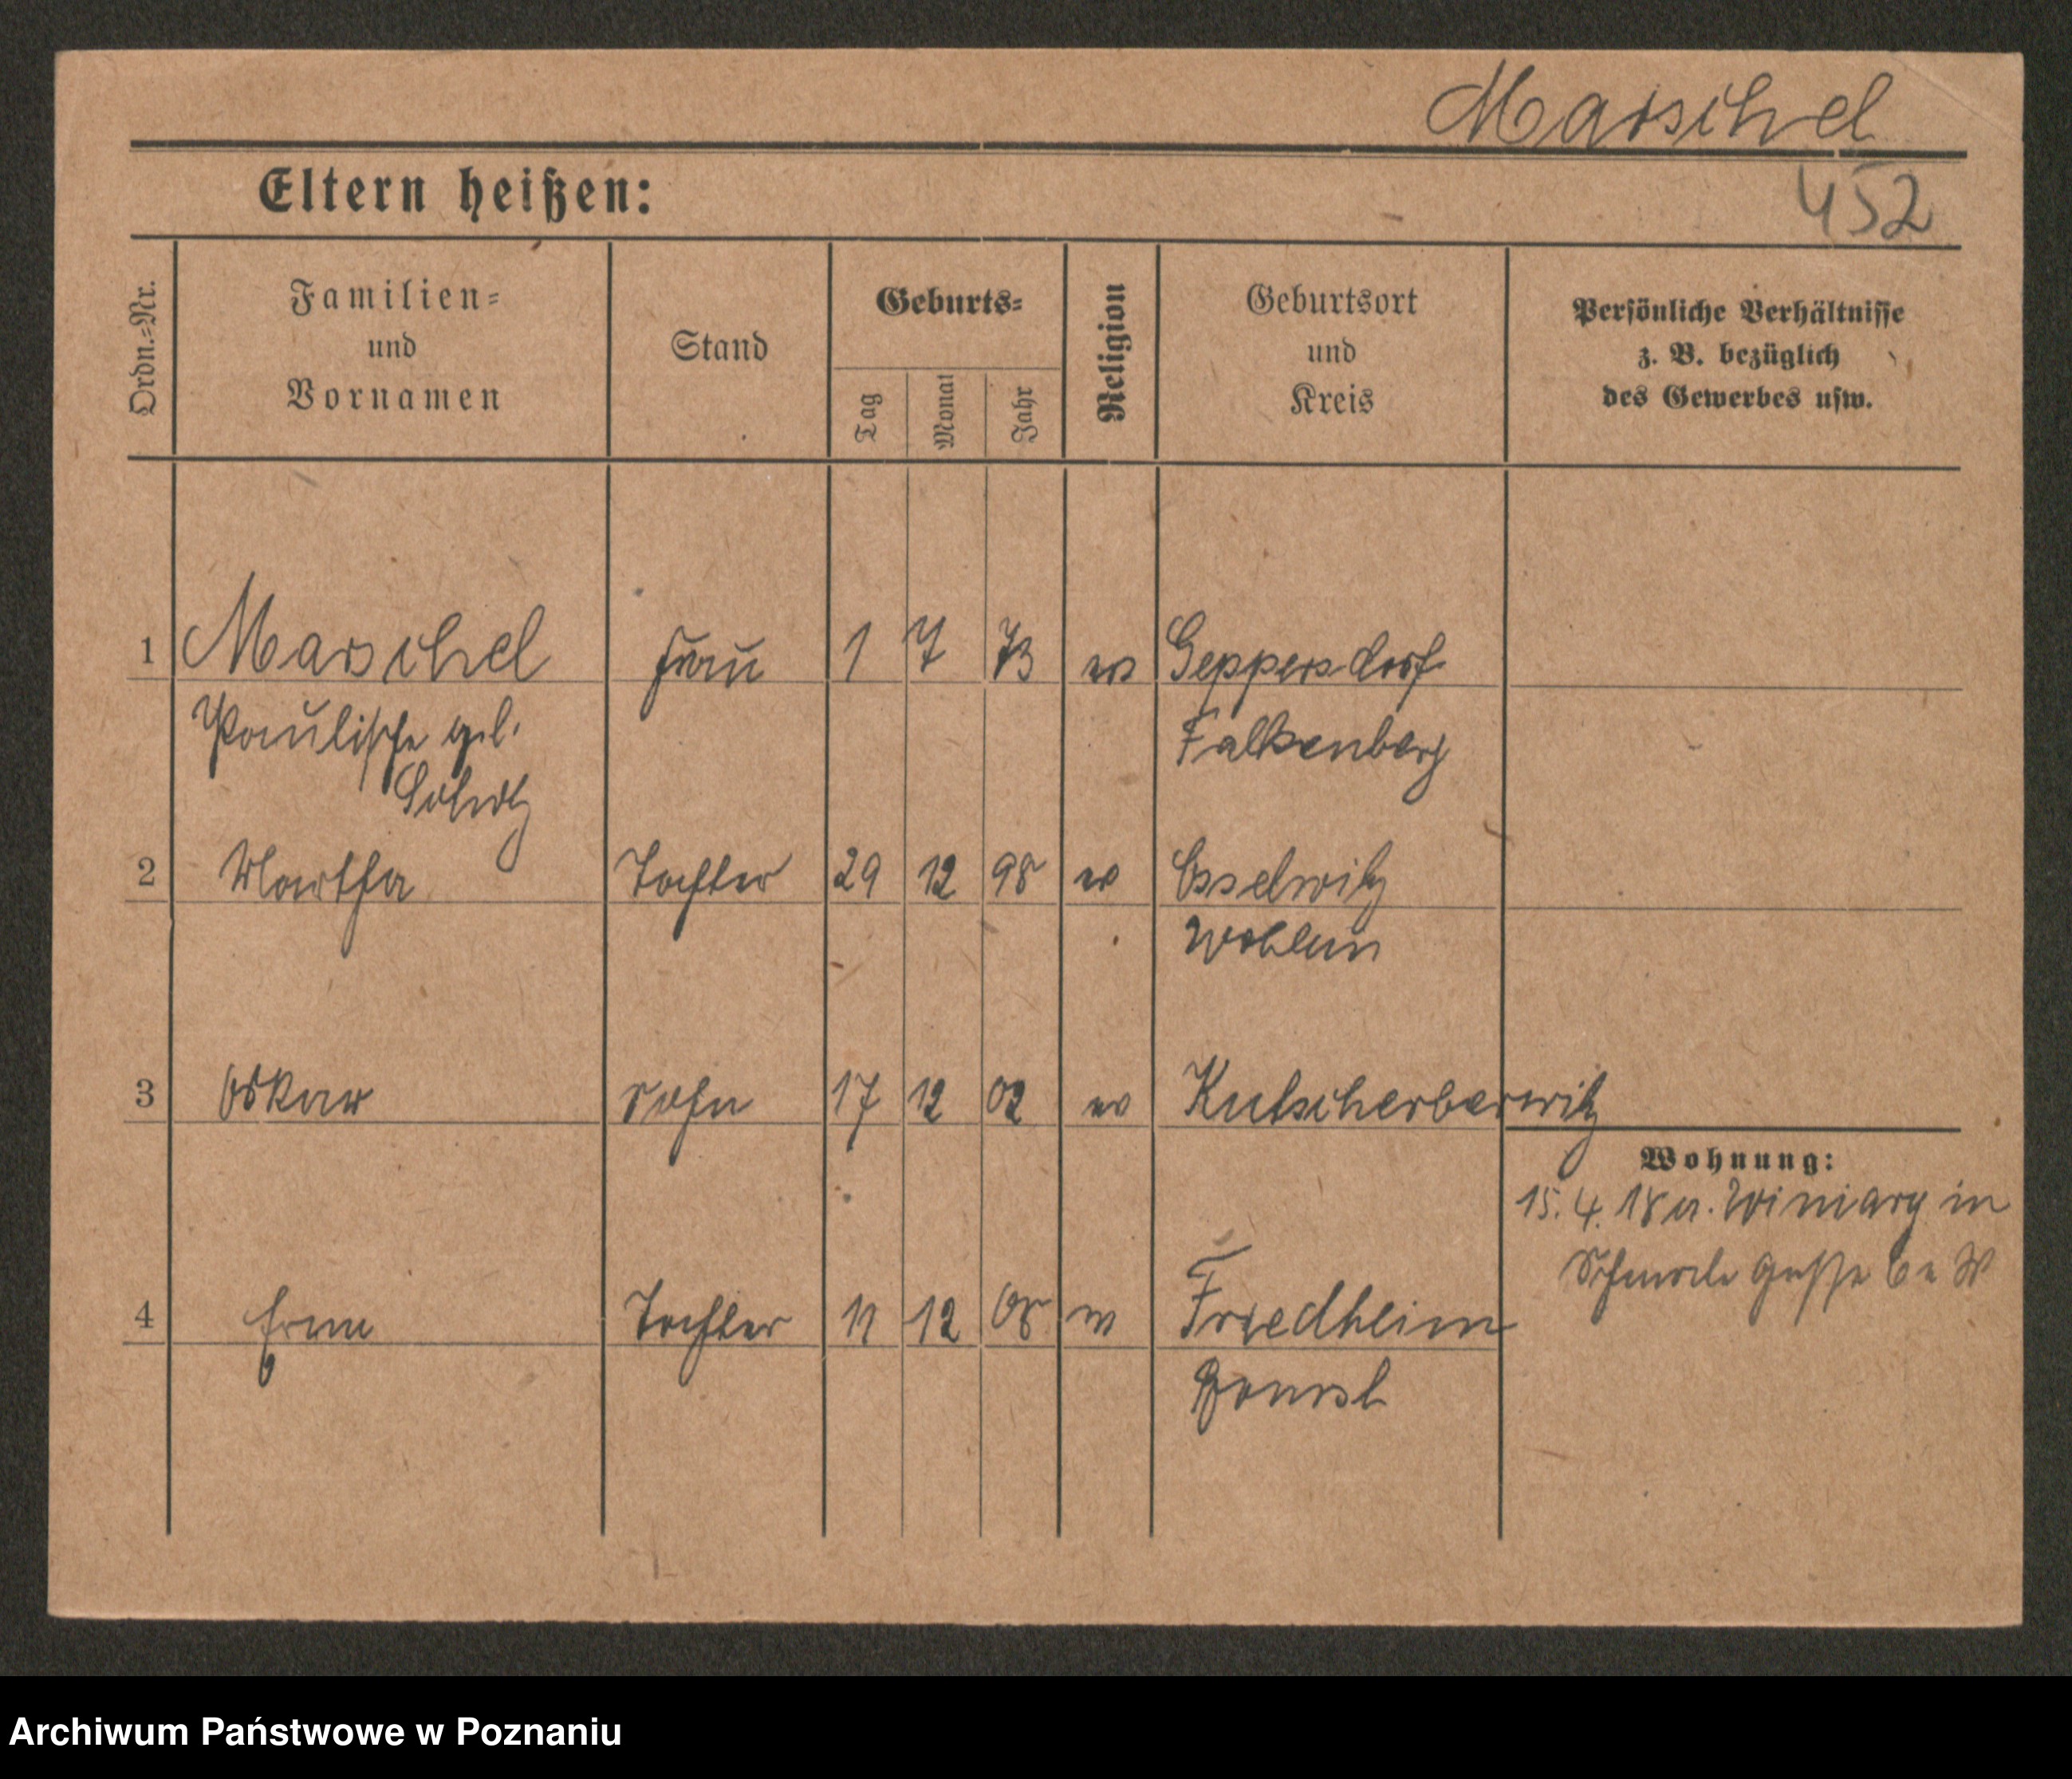 Marschel
Eltern heißen:
452
Ordn.=Nr.
Familien=
und
Vornamen
Stand
Geburts=
Tag
Monat
Jahr
Religion
Geburtsort
und
Kreis
Persönliche Verhältnisse
z. B. bezüglich
des Gewerbes usw.
1 Marschel Frau 1 7 73 ev Geppersdorf
geb. Falkenberg
Scholz
2 Martha Tochter 29 12 98 ev Osselwitz
Wohlau
3 Oskar Sohn 17 12 02 ev Kutscherborwitz
Wohnung:
15. 4. 18 Winiary in
4 Erna Tochter 11 12 08 Friedheim
Archiwum Państwowe w Poznaniu